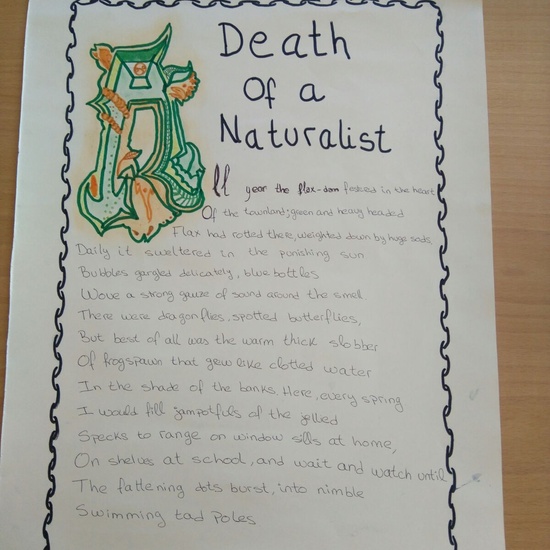 Death
Of a
Naturalist
All year the flax-dam festered in the heart
Of the townland; green and heavy headed
Flax had rotted there, weighted down by huge sods
Daily it sweltered in the punishing sun
Bubbles gargled delicately, blue bottles
Wove a strong gauze of sound around the smell.
There were dragonflies, spotted butterflies,
But best of all was the warm thick slobber
Of frogspawn that gew like clotted water
In the shade of the banks. Here, every spring
I would fill jampotfuls of the jellied
Specks to range on window sills at home,
On shelves at school, and wait and watch until
The fattening dots burst, into nimble
Swimming tad poles